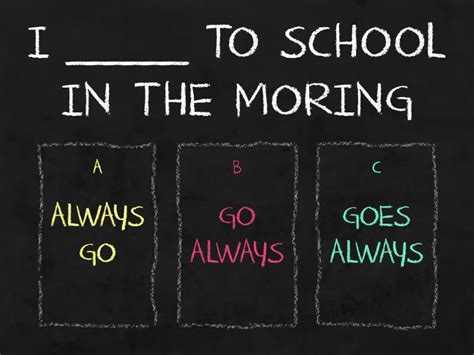 I _____ TO SCHOOL
IN THE MORING
A
ALWAYS
GO
B
GO
ALWAYS
C
GOES
ALWAYS